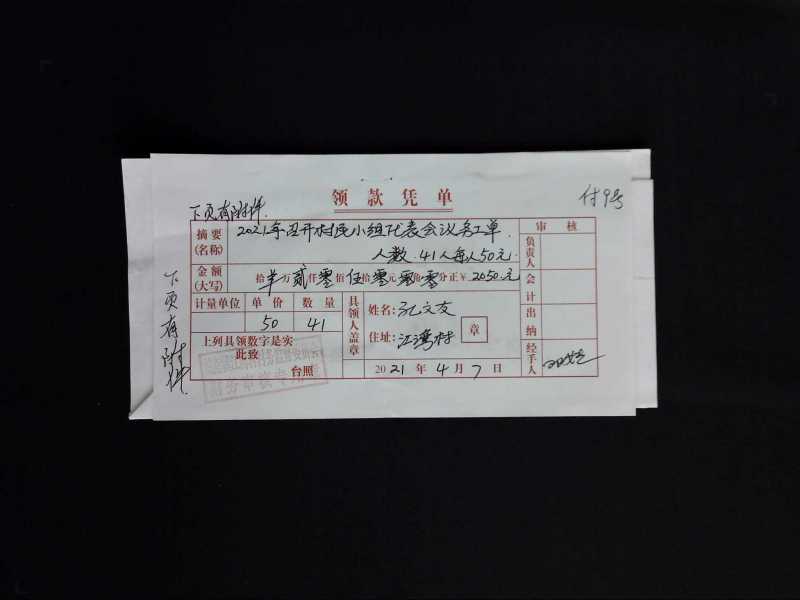 领款凭单
付9号
下页有附件.
摘要(名称) 2021年召开村民小组代表会议务工单.
人数.41人每人50元.
审核
负责人
会计
出纳
经手人
金额(大写) 拾羊万贰仟零佰伍拾零元零角零分正¥2050.元
计量单位 单价 数量
50 41
具领人盖章
姓名:孔文友
住址:江湾村
章
上列具领数字是实
此致
台照
2021年4月7日
下页有附件.